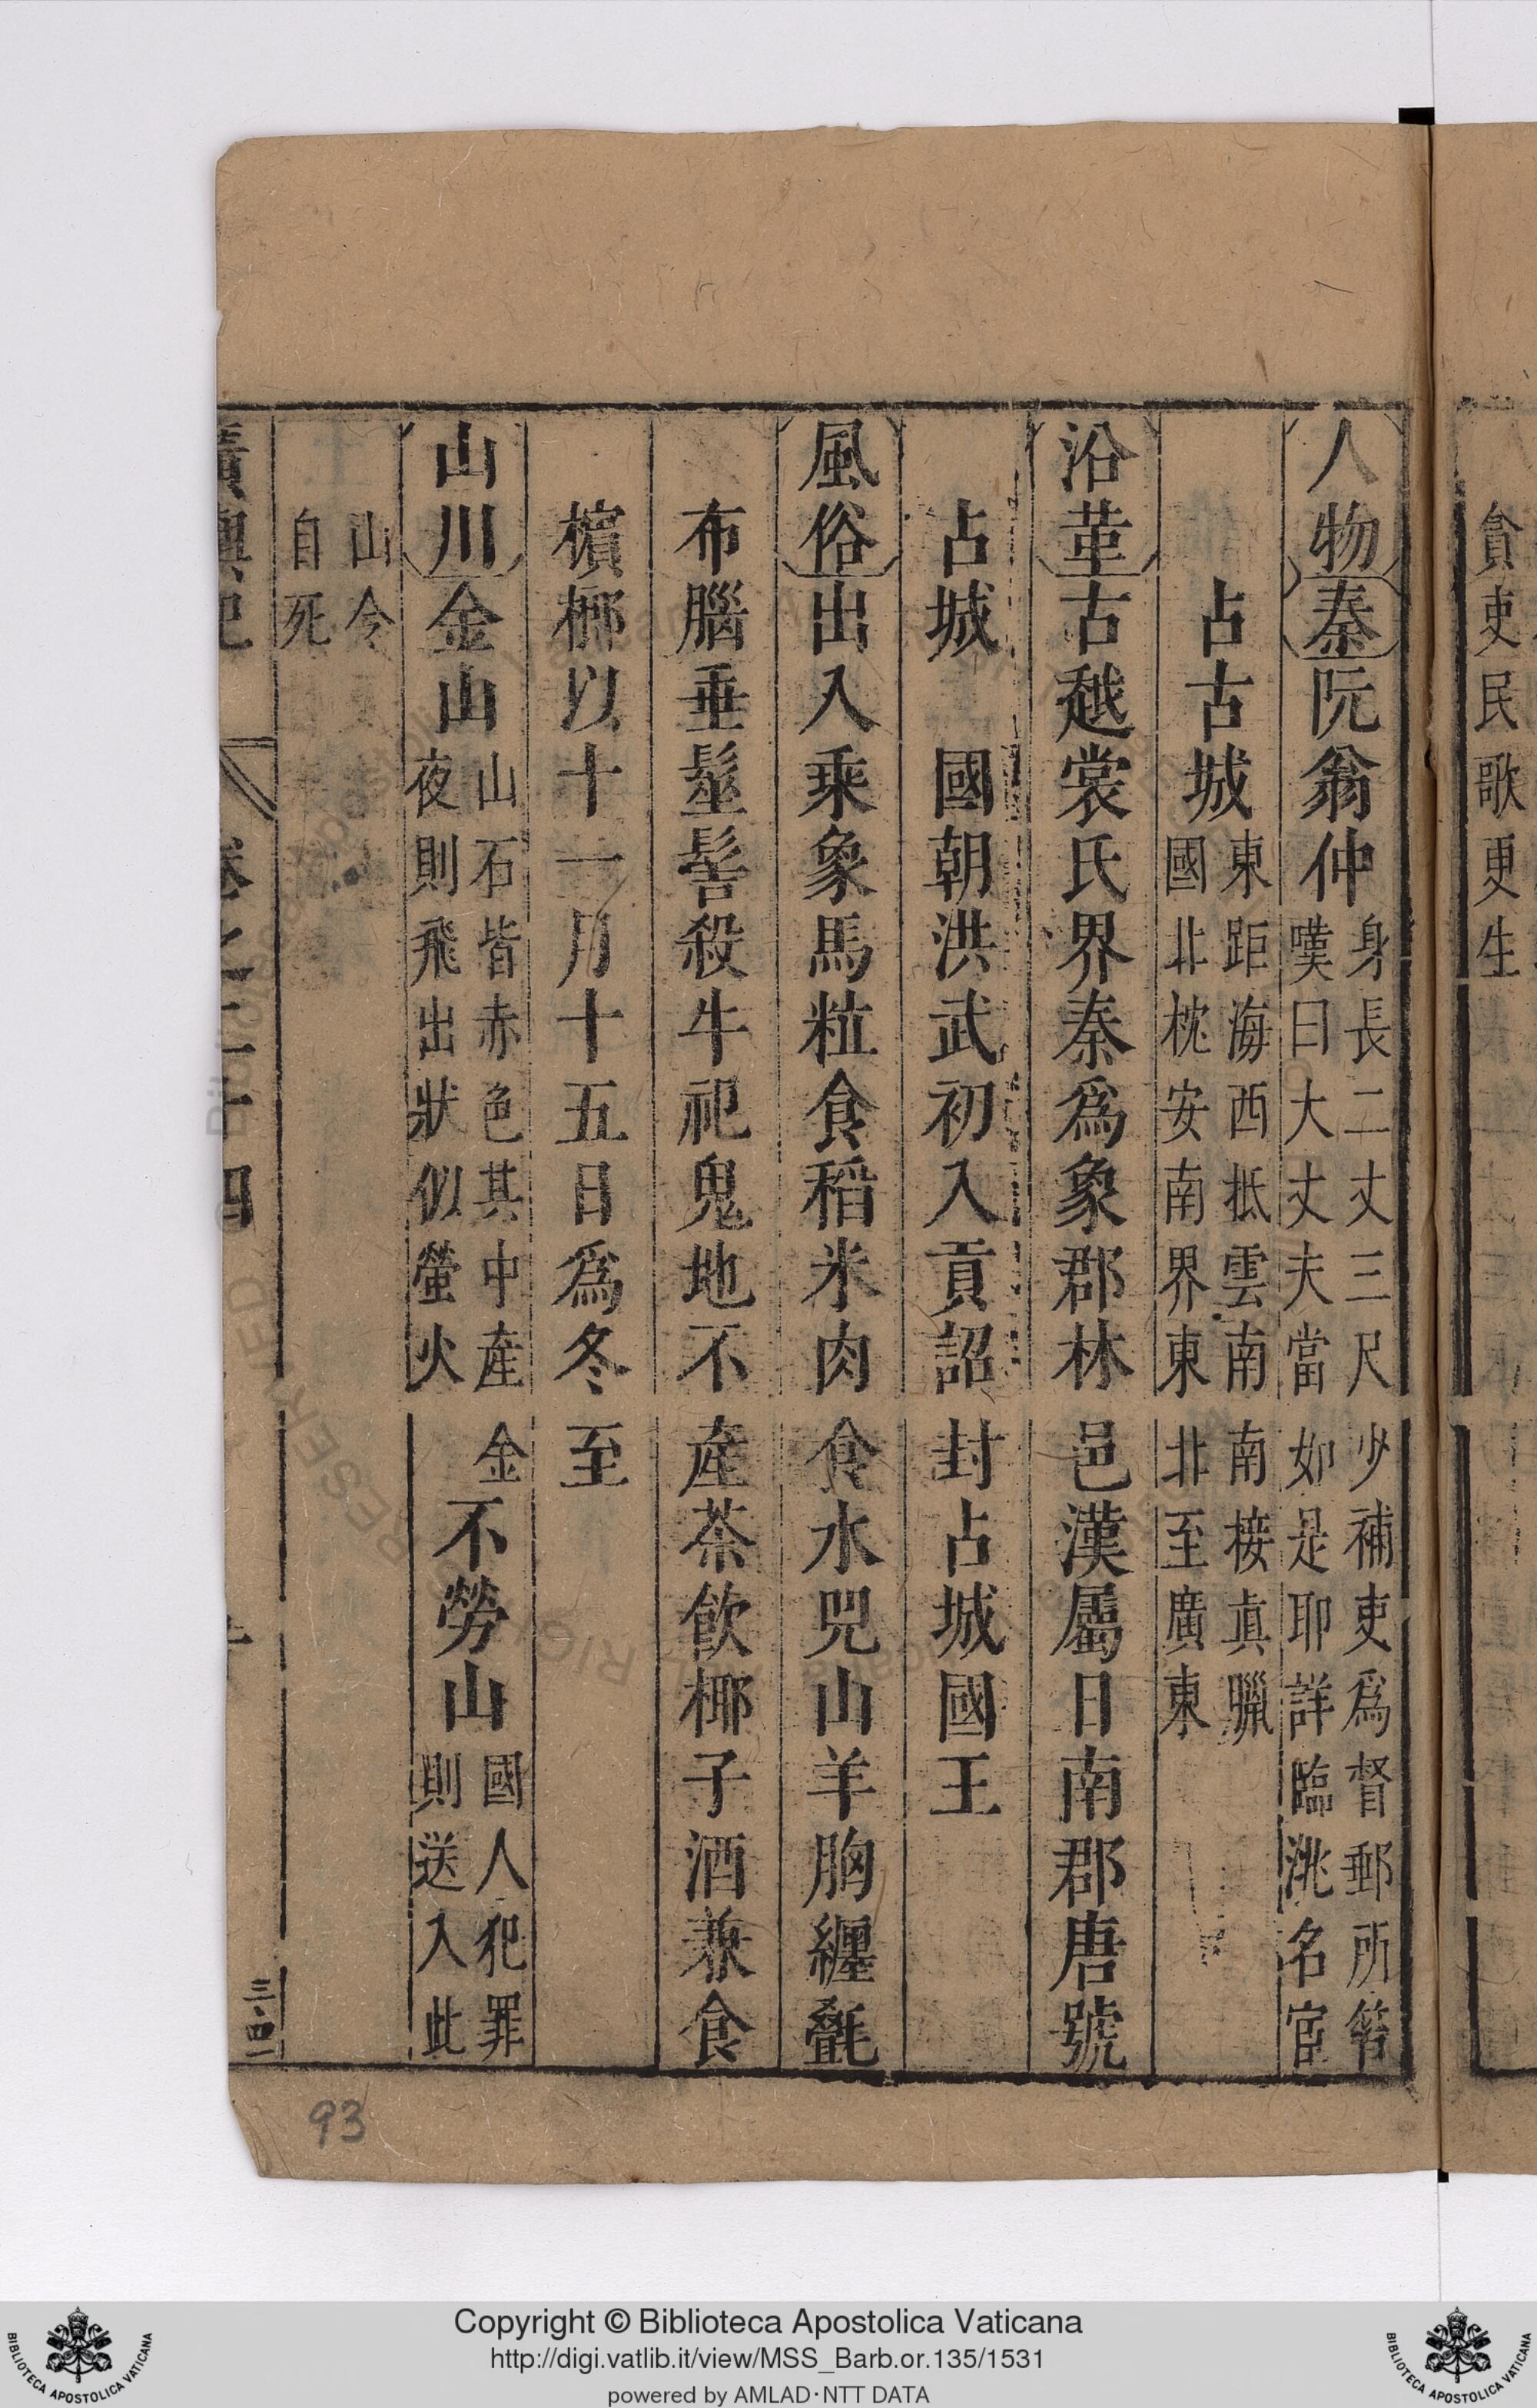 貪吏民歌更生
人物秦阮翁仲身長二丈三尺少補吏爲督郵所笞嘆曰大丈夫當如是耶詳臨洮名宦
占古城東距海西抵雲南南接真臘國北枕安南界東北至廣東
沿革古越裳氏界秦爲象郡林邑漢屬日南郡唐號
占城 國朝洪武初入貢詔封占城國王
風俗出入乘象馬粒食稻米肉食水兕山羊胸纏㲲
布腦垂髽髻殺牛祀鬼地不產茶飲椰子酒兼食
檳榔以十一月十五日爲冬至
山川金山山石皆赤色其中產金夜則飛出狀似螢火不勞山國人犯罪則送入此
山令自死
廣輿記 卷之二十四
三·四一
93
Copyright © Biblioteca Apostolica Vaticana
http://digi.vatlib.it/view/MSS_Barb.or.135/1531
powered by AMLAD·NTT DATA
BIBLIOTECA APOSTOLICA VATICANA
BIBLIOTECA APOSTOLICA VATICANA